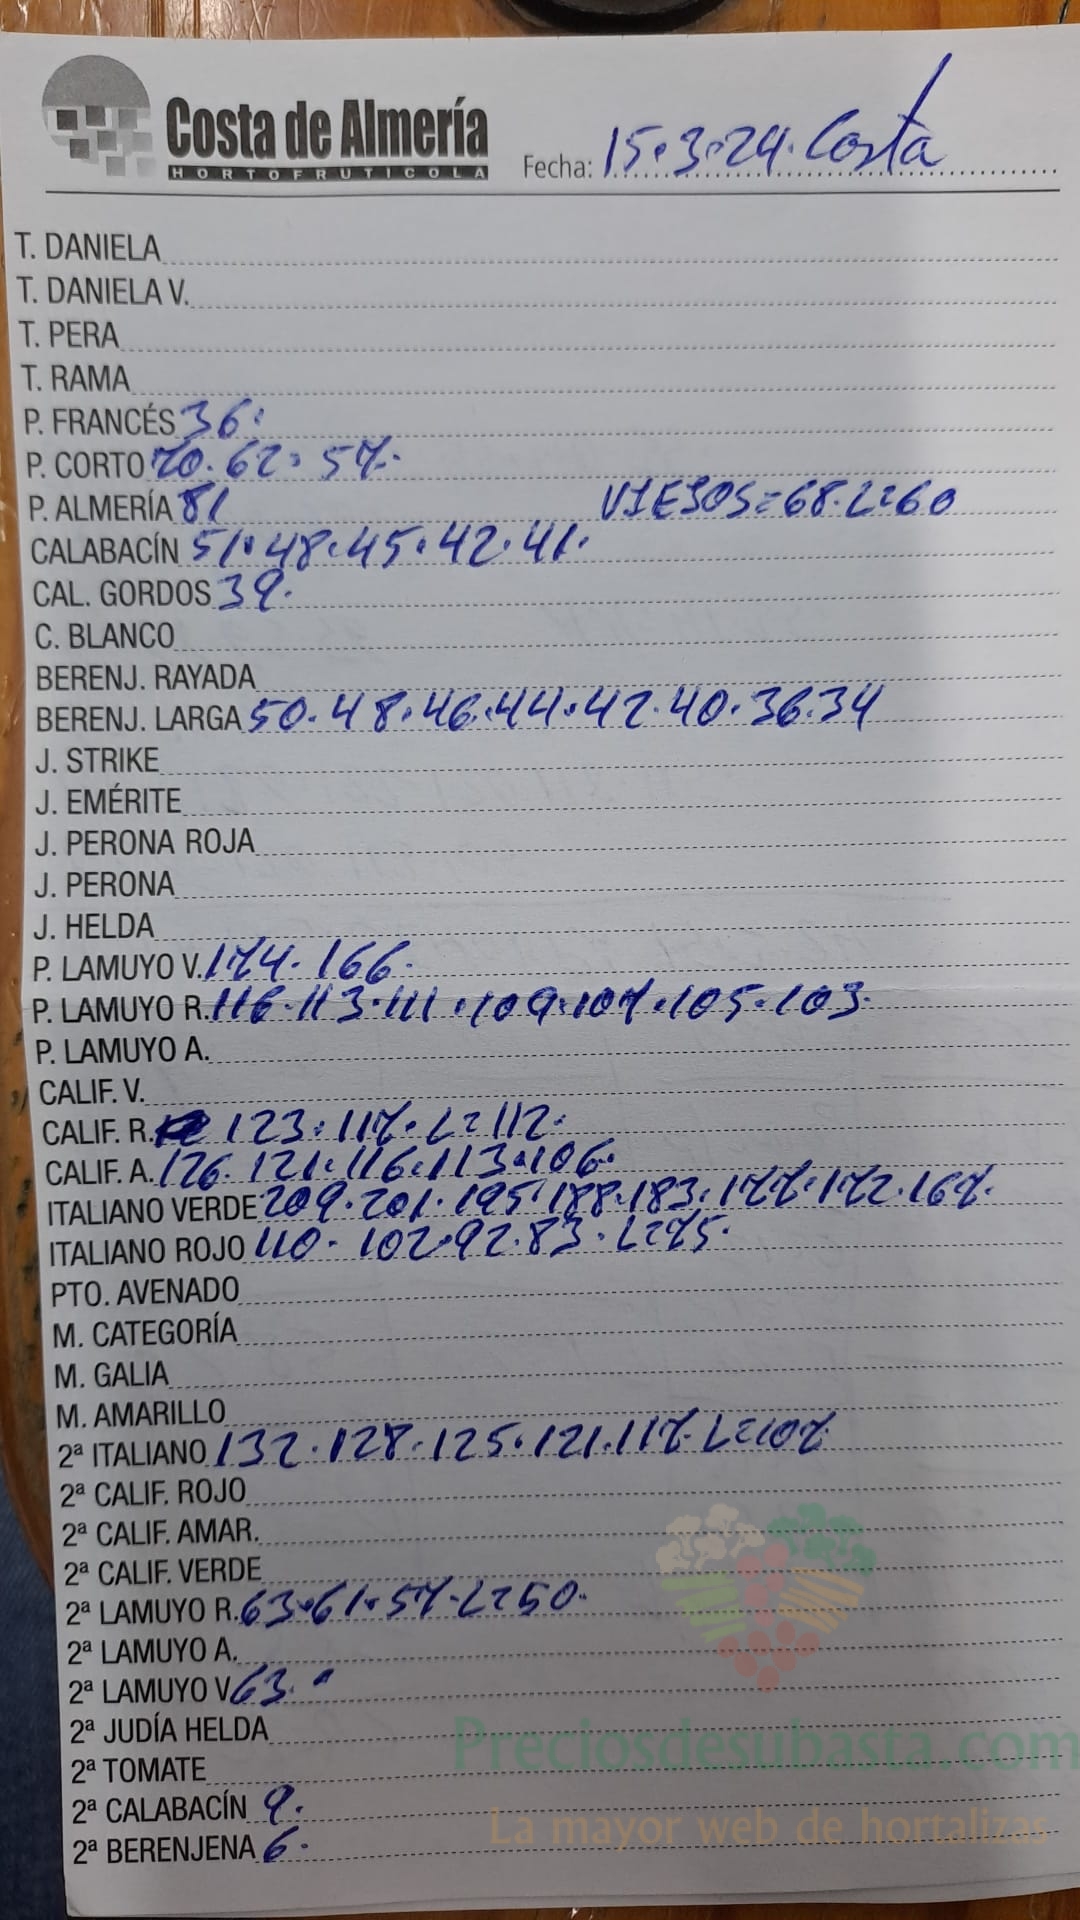 Costa de Almería
HORTOFRUTICOLA
Fecha: 15.3.24. Costa
T. DANIELA
T. DANIELA V.
T. PERA
T. RAMA
P. FRANCÉS 36.
P. CORTO 70. 62. 57.
P. ALMERÍA 81 VIEJOS=68. L=60
CALABACÍN 51. 48. 45. 42. 41.
CAL. GORDOS 39.
C. BLANCO
BERENJ. RAYADA
BERENJ. LARGA 50. 48. 46. 44. 42. 40. 36. 34
J. STRIKE
J. EMÉRITE
J. PERONA ROJA
J. PERONA
J. HELDA
P. LAMUYO V. 174. 166.
P. LAMUYO R. 116. 113. 111. 109. 107. 105. 103.
P. LAMUYO A.
CALIF. V.
CALIF. R. 123. 117. L=112.
CALIF. A. 126. 121. 116. 113. 106.
ITALIANO VERDE 209. 201. 195. 188. 183. 177. 172. 167.
ITALIANO ROJO 110. 102. 92. 83. L=75.
PTO. AVENADO
M. CATEGORÍA
M. GALIA
M. AMARILLO
2ª ITALIANO 132. 128. 125. 121. 117. L=107.
2ª CALIF. ROJO
2ª CALIF. AMAR.
2ª CALIF. VERDE
2ª LAMUYO R. 63. 61. 57. L=50.
2ª LAMUYO A.
2ª LAMUYO V 63.
2ª JUDÍA HELDA
Preciosdesubasta.com
2ª TOMATE
2ª CALABACÍN 9.
La mayor web de hortalizas
2ª BERENJENA 6.